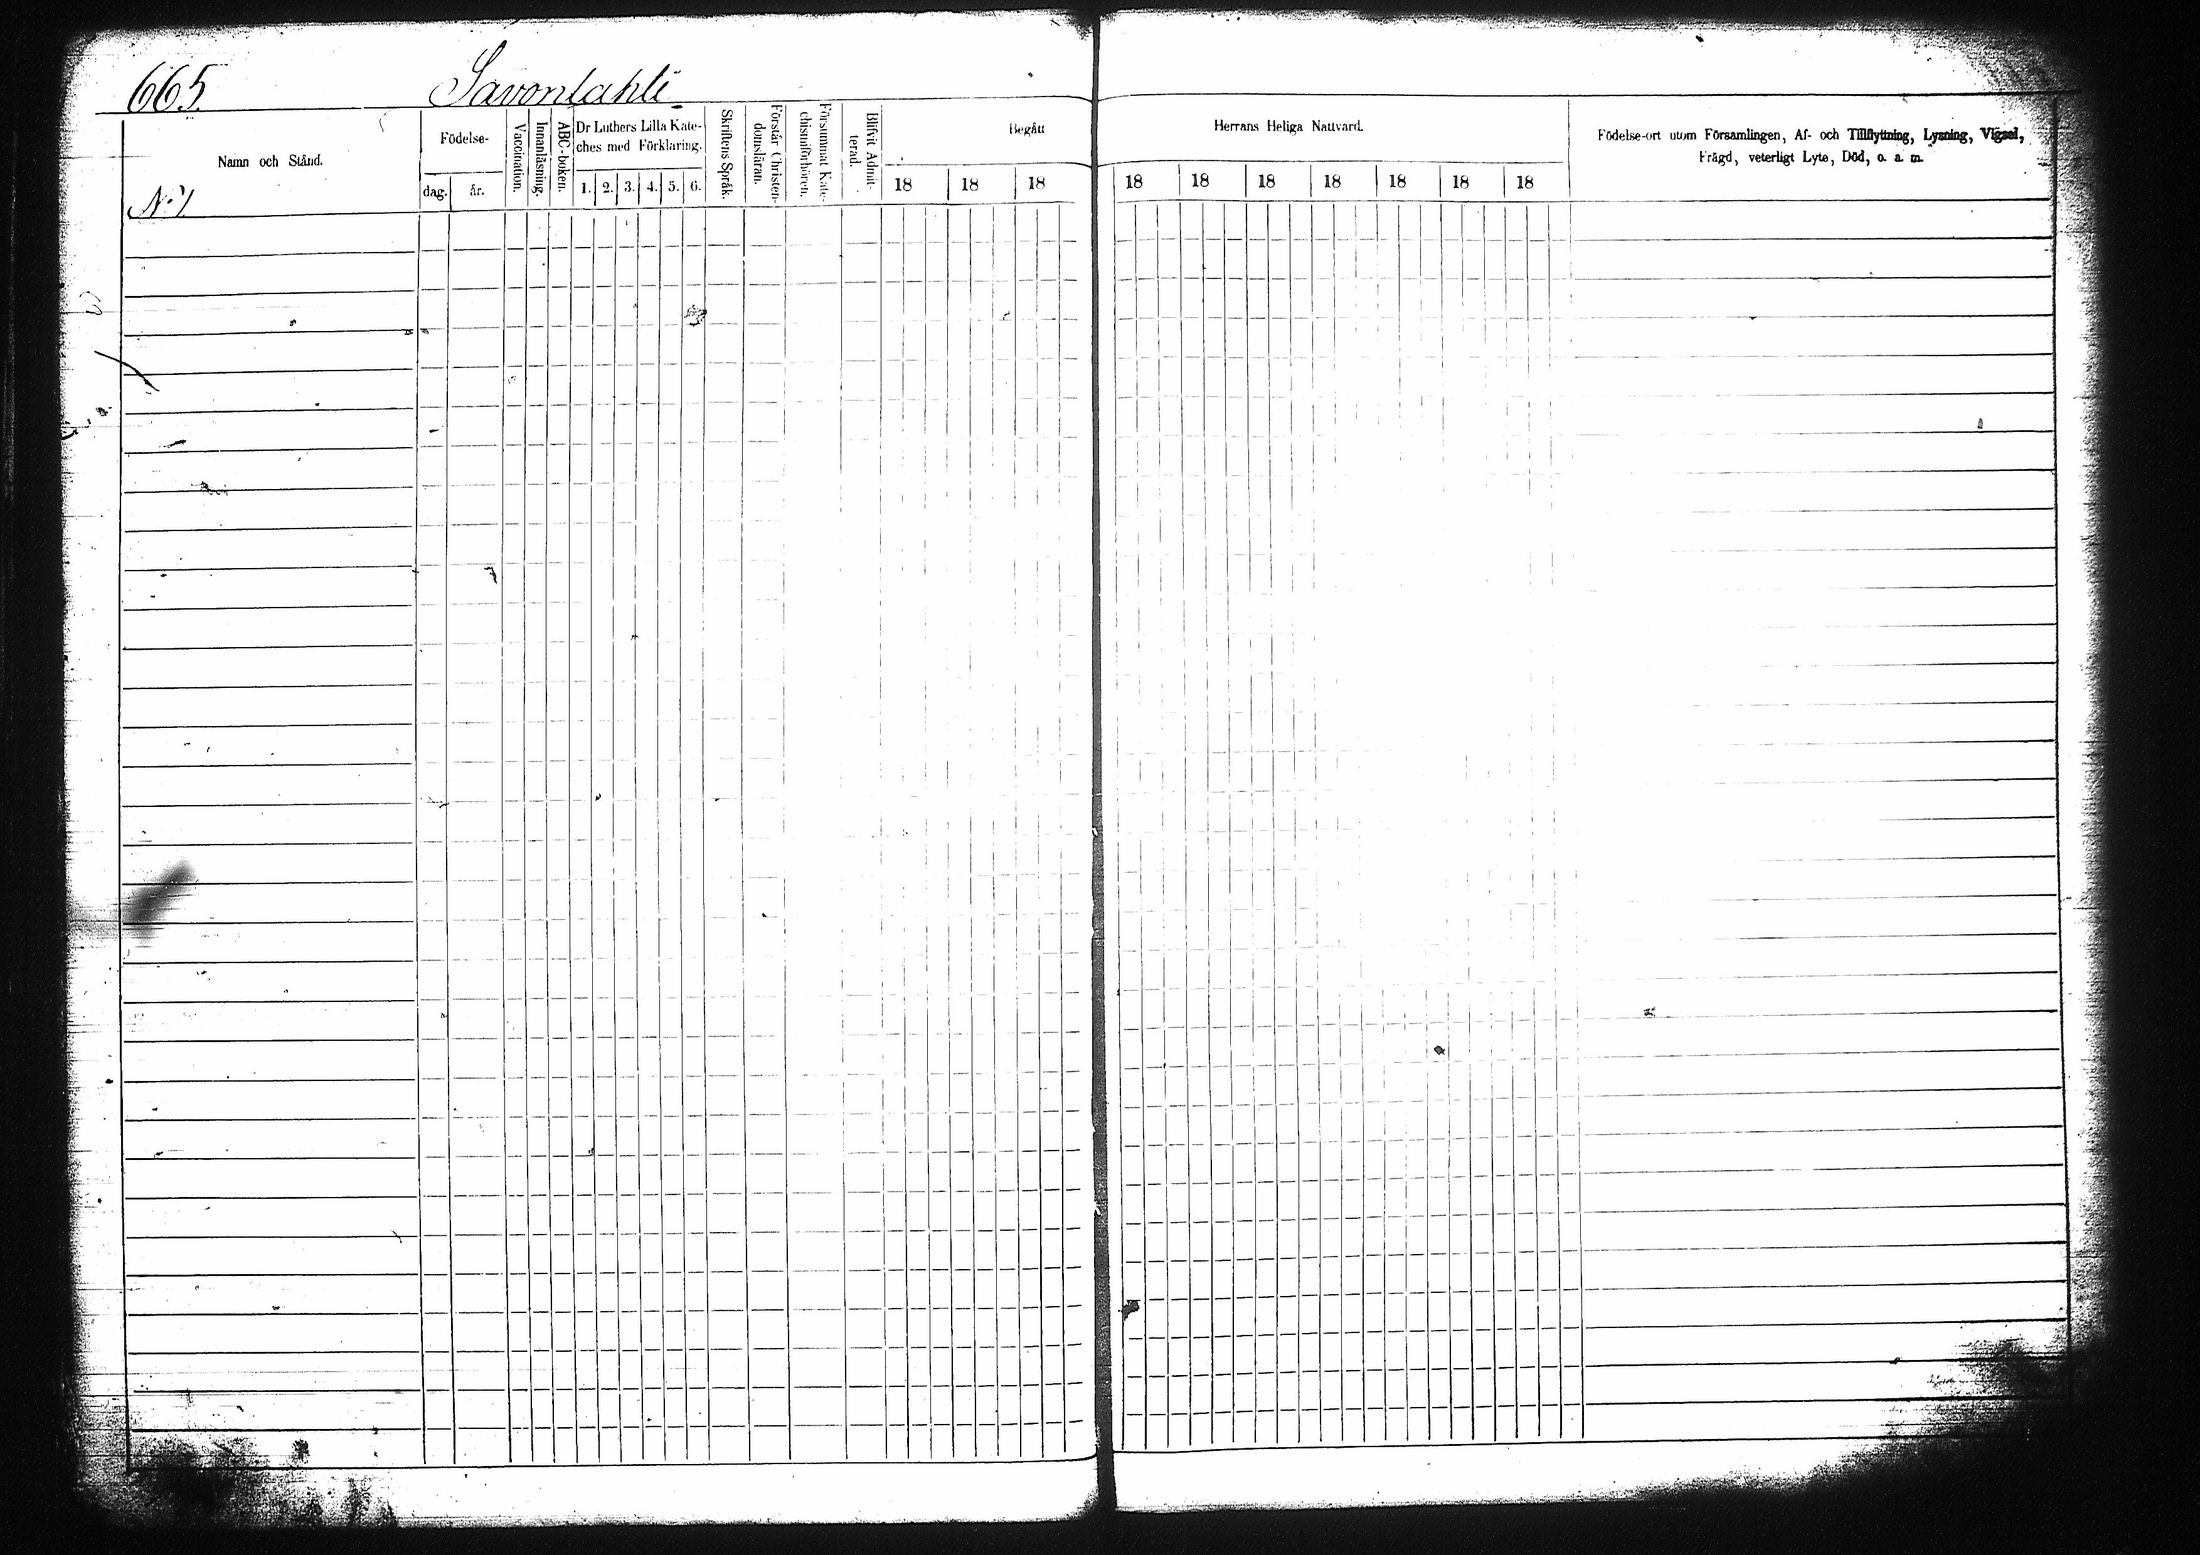 665. Savonlahti
Namn och Stånd.
Födelse-
dag. år.
Vaccination.
Innanläsning.
ABC-boken.
Dr Luthers Lilla Kate-
ches med Förklaring.
1. 2. 3. 4. 5. 6.
Skriftens Språk.
Förstår Christen-
domsläran.
Försummat Kate-
chismiförhören.
Blifvit Admit-
terad.
Begått
18 18 18
Herrans Heliga Nattvard.
18 18 18 18 18 18 18
Födelse-ort utom Församlingen, Af- och Tillflyttning, Lysning, Vigsel,
Frägd, veterligt Lyte, Död, o. a. m.
No 1.